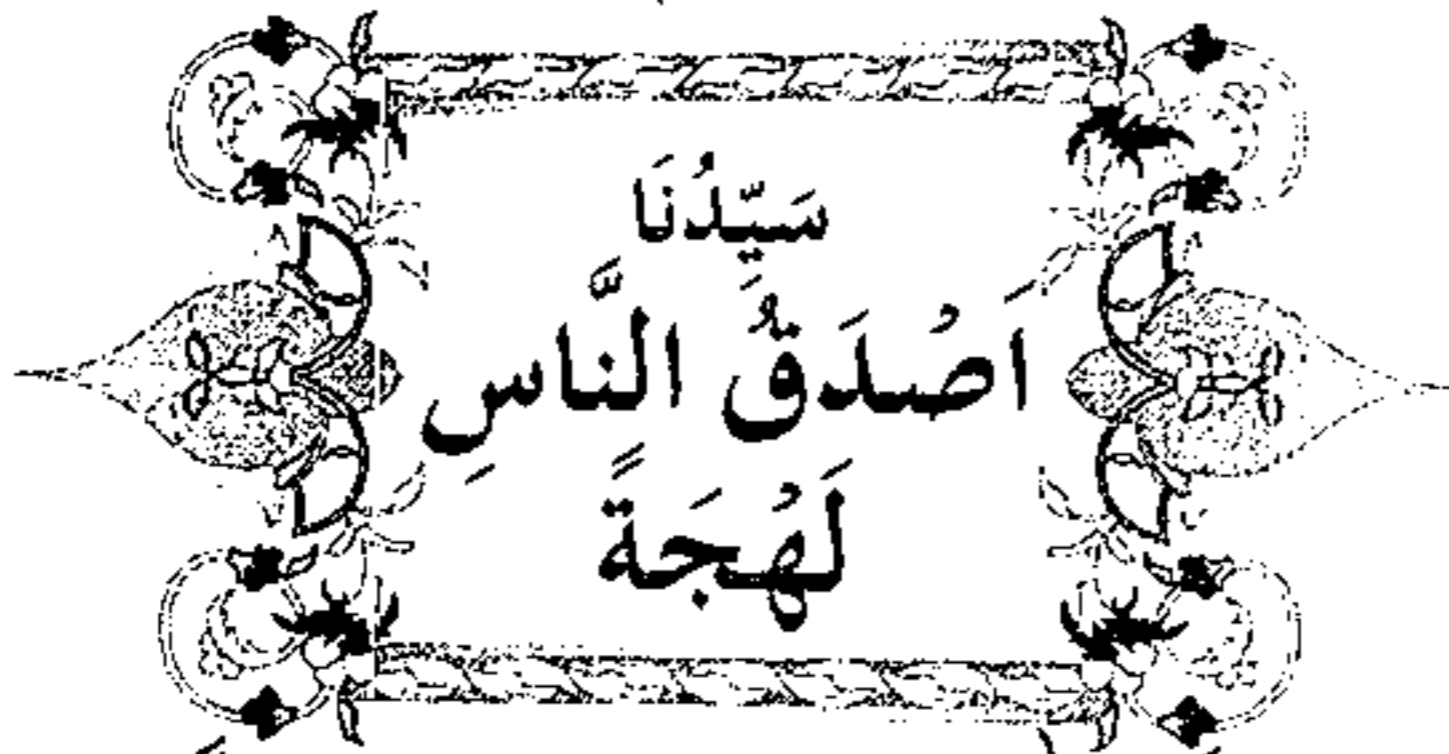 سَيِّدُنَا
اَصْدَقُ النَّاسِ
لَهْجَةً